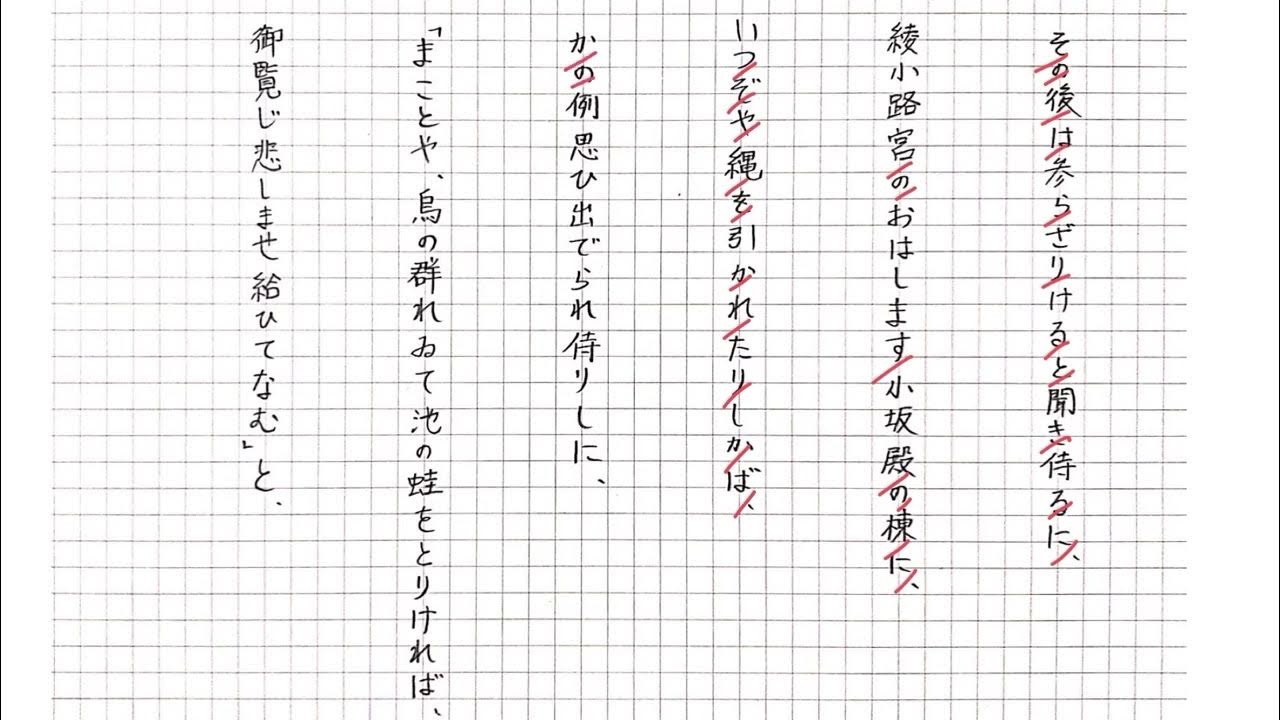 その後は参らざりけると聞き侍るに、
綾小路宮のおはします小坂殿の棟に、
いつぞや縄を引かれたりしかば、
かの例思ひ出でられ侍りしに、
「まことや、烏の群れゐて池の蛙をとりければ、
御覧じ悲しませ給ひてなむ」と、